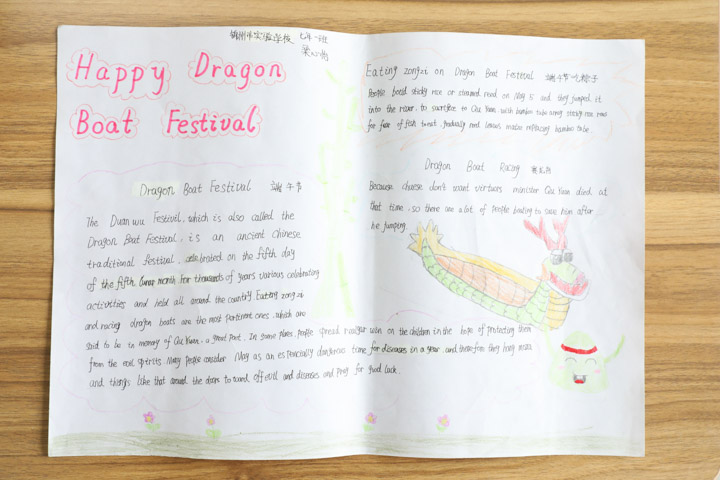 锦州市实验学校 七年一班
Happy Dragon
Boat Festival
Dragon Boat Festival 端午节
The Duanwu Festivil, which is also called the
Dragon Boat Festival, is an ancient Chinese
traditional festival, celebrated on the fifth day
of the fifth lunar month. For thousands of years various celebrating
activities and held all around the country Eating zongzi
and racing dragon boats are the most pertinent ones, which are
said to be in memory of Qu Yuan, a great poet. In some places, people spread realgar win on the children in the hope of protecting them
from the evil spirits. Many people consider May as an especially dangerous time for diseases in a year, and therefore they hang
and things like that around the doors to ward off evil and diseases and pray for good luck.
Eating zongzi on Dragon Boat Festival 端午节吃粽子
People boild sticky rice or steamed on May 5 and they jumped it
into the river. to sacrifice to Qu Yuan, with bamboo tube sticky rice
for fear of fish to eat, gradually reed leaves replacing bamboo tube.
Dragon Boat Racing 赛龙舟
Because chuese don't want virtues minister Qu Yuan died at
that time, so there are a lot of people boating to save him after
he jumping.